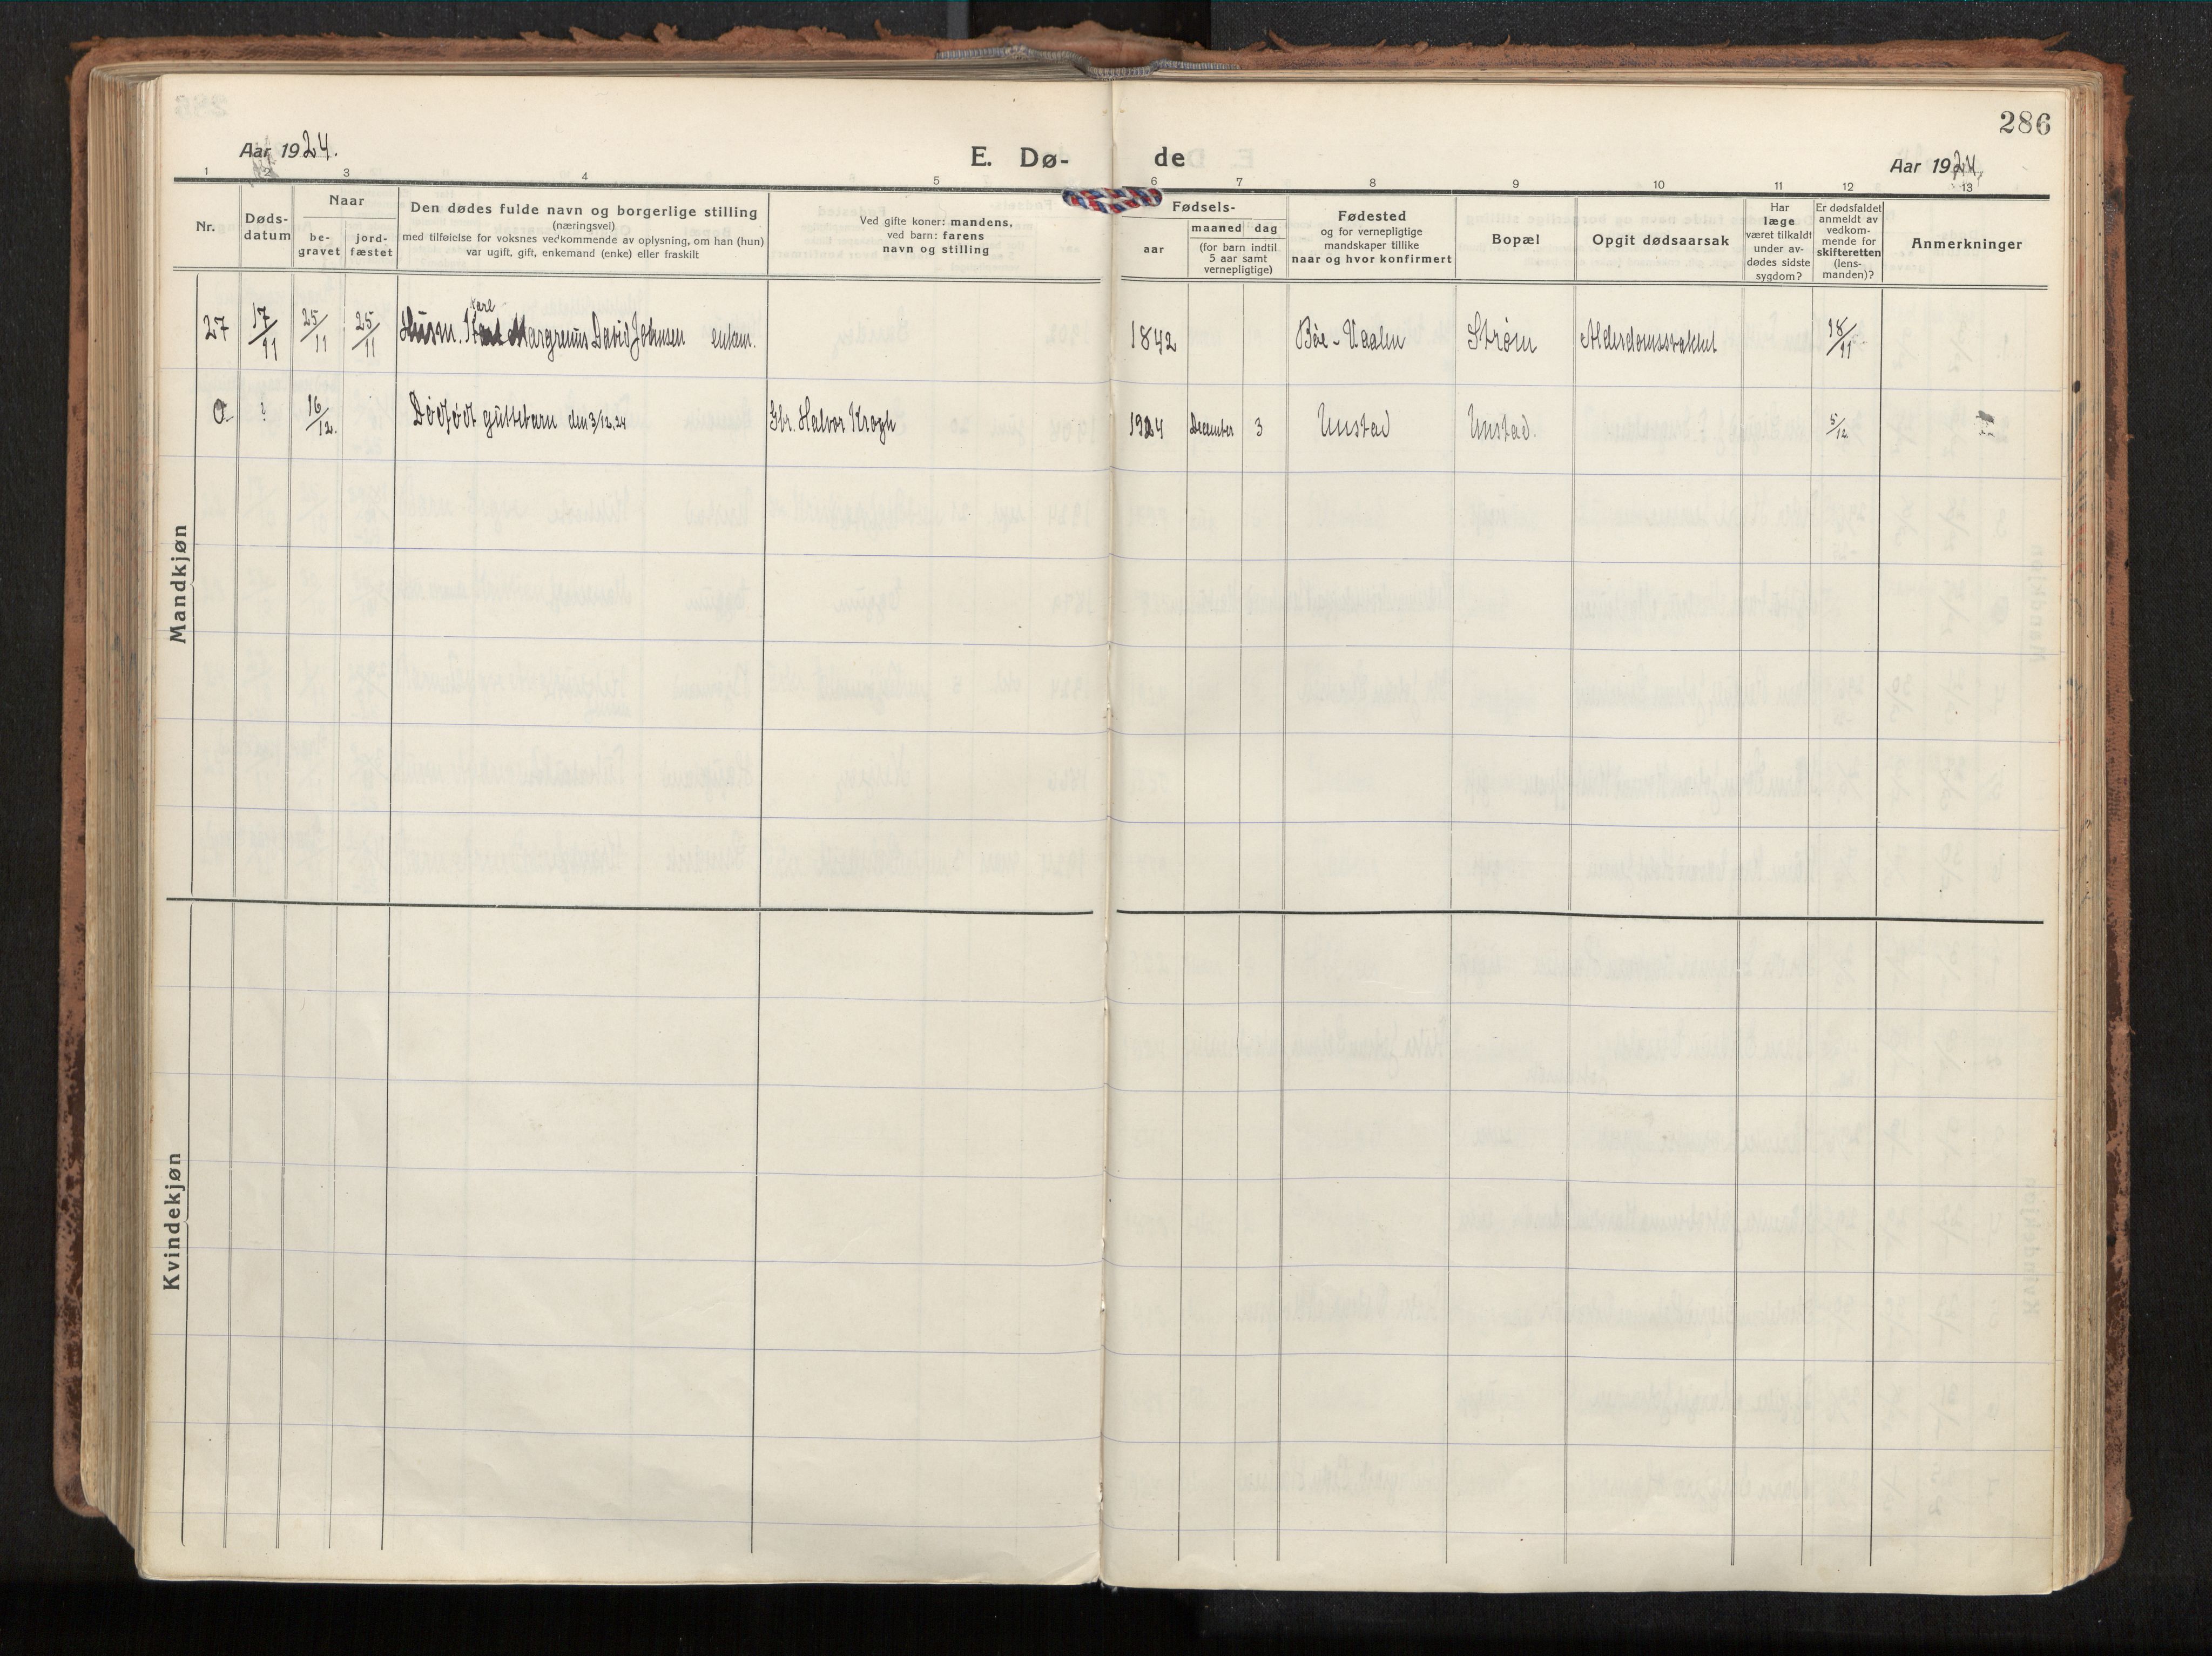 286
Aar 1924.
E. Dø-
de
Aar 1924.
1 2 3 4 5 6 7 8 9 10 11 12 13
Nr.
Døds-
datum
Naar
be-
gravet
jord-
fæstet
Den dødes fulde navn og borgerlige stilling
(næringsvei)
med tilføielse for voksnes vedkommende av oplysning, om han (hun)
var ugift, gift, enkemand (enke) eller fraskilt
Ved gifte koner: mandens,
ved barn: farens
navn og stilling
Fødsels-
aar
maaned dag
(for barn indtil
5 aar samt
vernepligtige)
Fødested
og for vernepligtige
mandskaper tillike
naar og hvor konfirmert
Bopæl
Opgit dødsaarsak
Har
læge
været tilkaldt
under av-
dødes sidste
sygdom?
Er dødsfaldet
anmeldt av
vedkom-
mende for
skifteretten
(lens-
manden)?
Anmerkninger
Mandkjøn
Karl
27 17/11 25/11 25/11 Husm. Margrenus David Johnsen enkem. 1842 Bøe - Vaalen Strøm Alderdomssvakhet 18/11
0 ? 16/12 Dødfødt guttebarn den 3/12.24 Fbr. Halvor Krogh 1924 December 3 Unstad Unstad. 5/12
Kvindekjøn